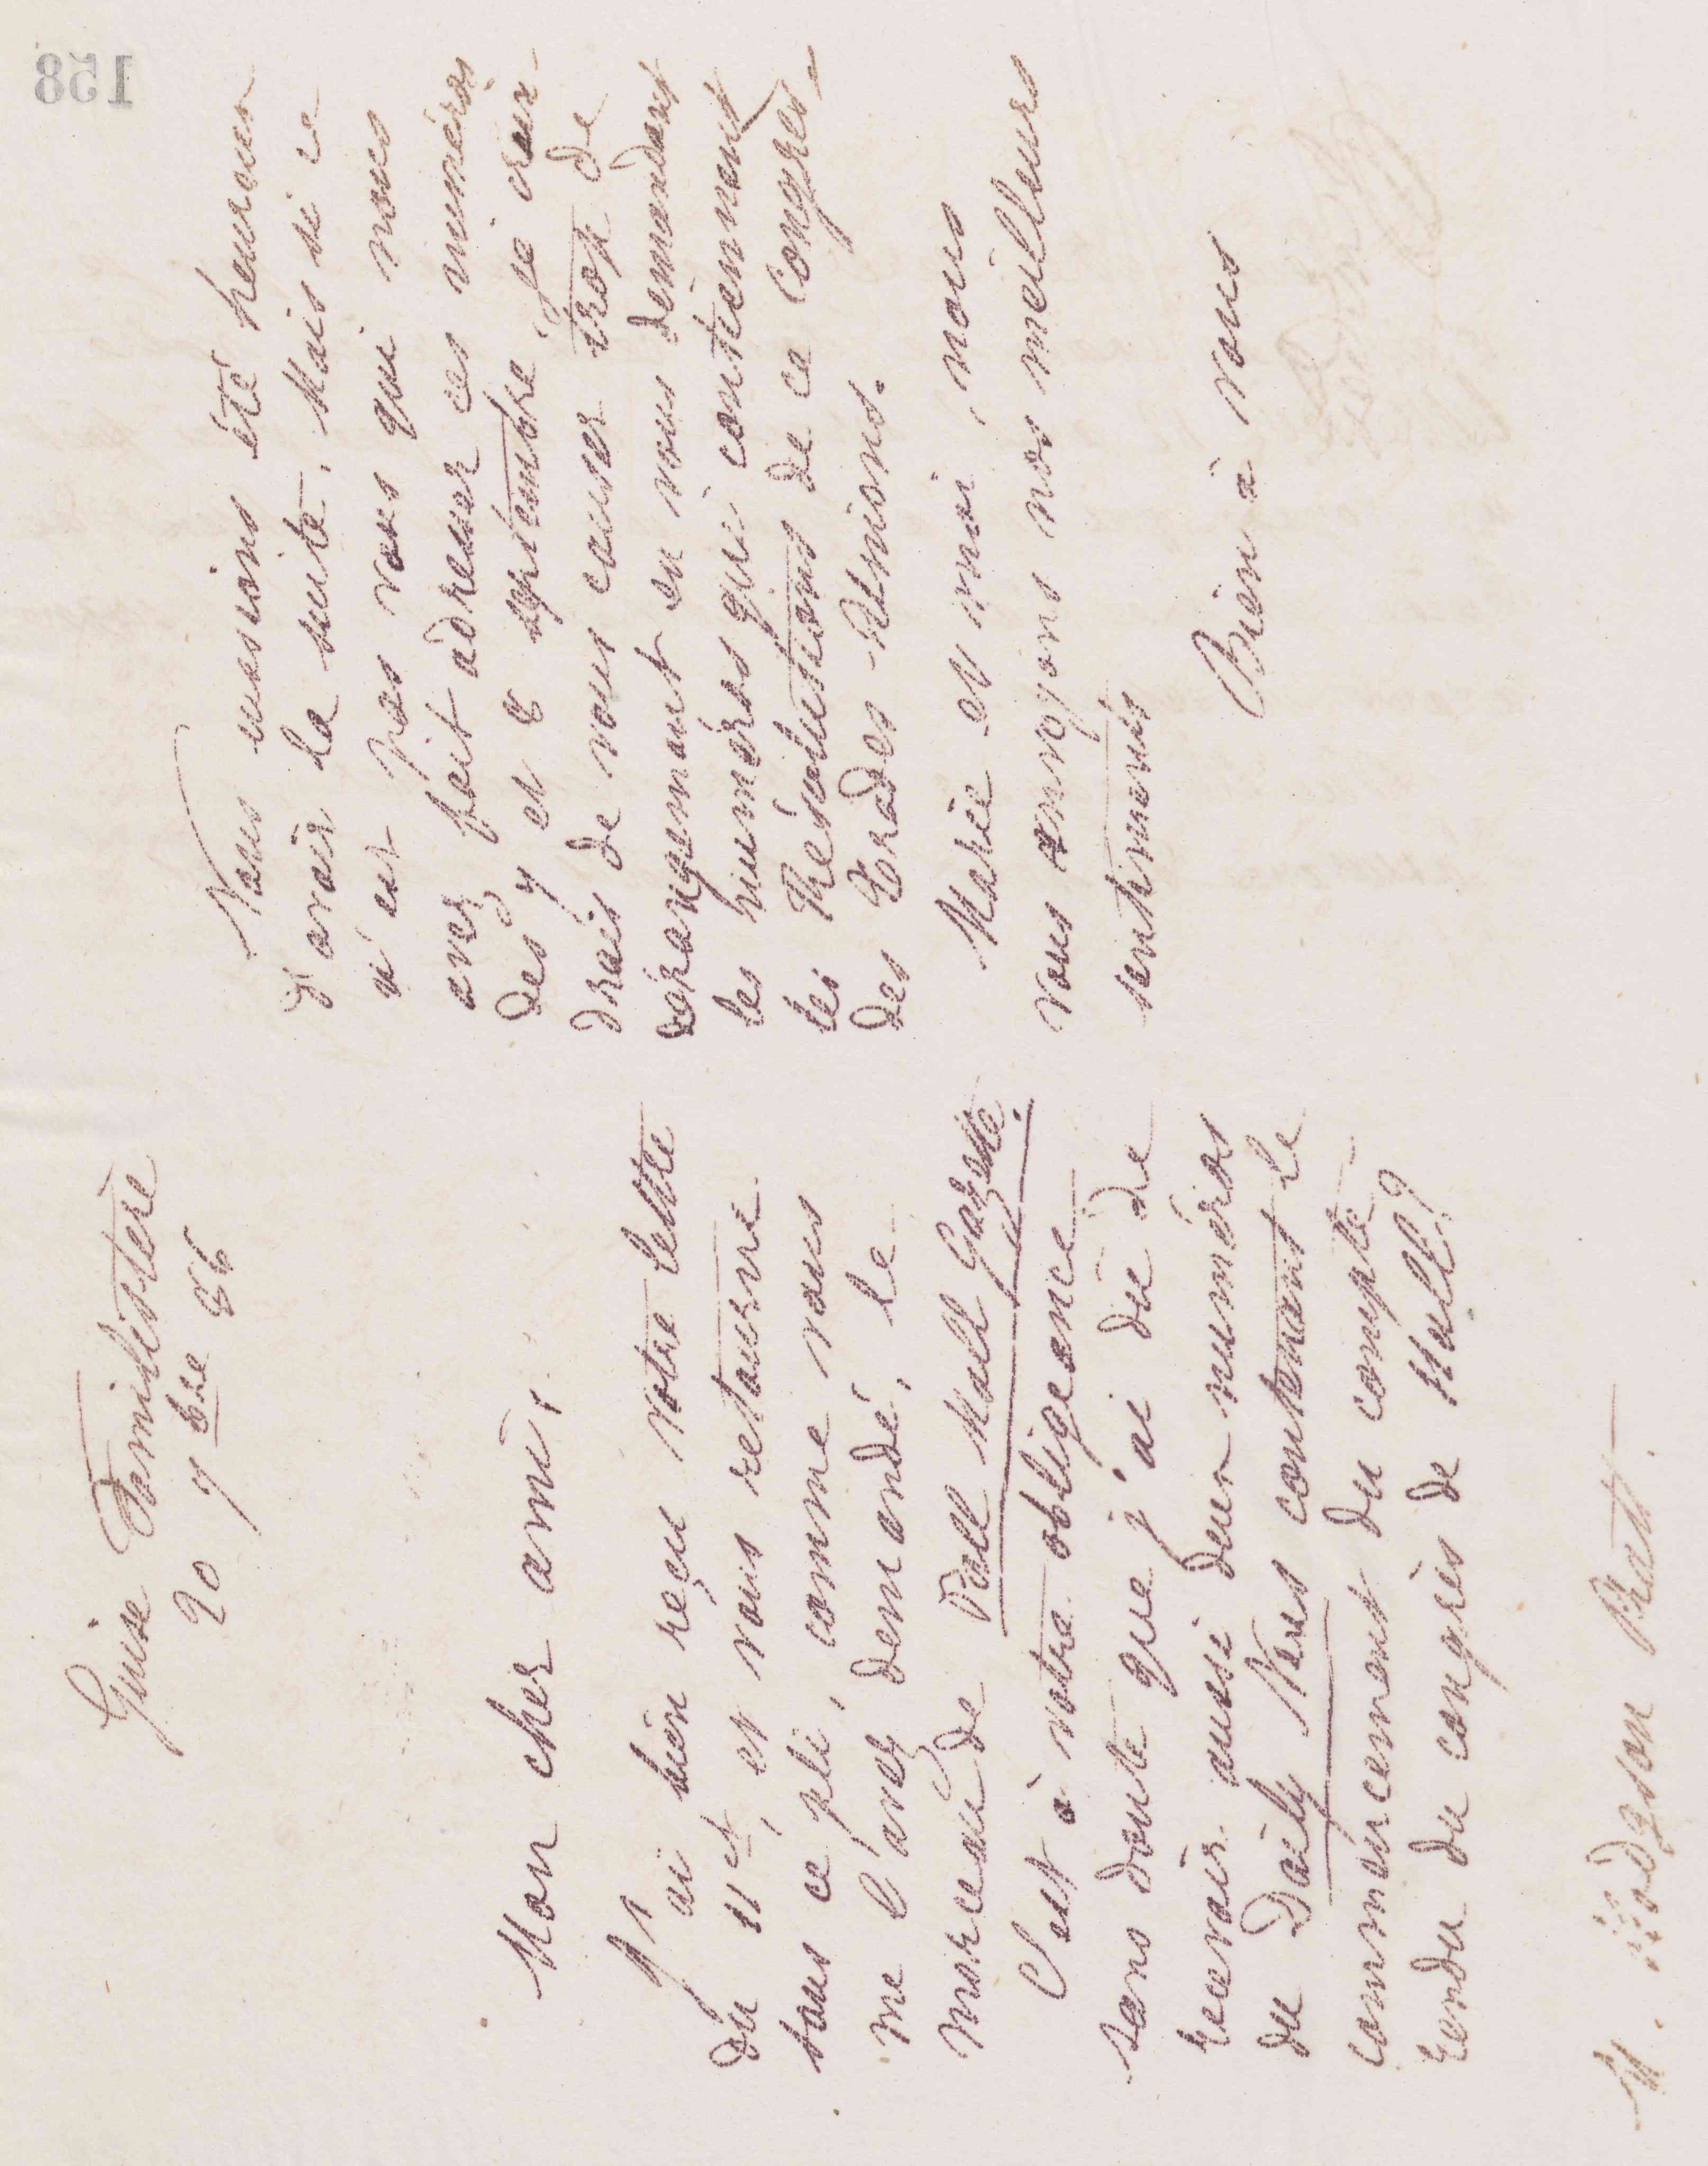 Guise Familistère
20 7bre 86
Mon cher ami,
J'ai bien reçu votre lettre
du 11 ct, et vous retourne
sous ce pli, comme vous
me l'avez demandé, le
morceau de Pall Mall Gazette.
C'est à votre obligeance
sans doute que j'ai dû de
recevoir aussi deux numéros
du Daily News contenant le
commencement du compte-
rendu du congrès de Hull?
M. Hodgson Pratt.
Nous eussions été heureux
d'avoir la suite. Mais si ce
n'est pas vous qui nous
avez fait adresser ces numéros
des 7 et 8 septembre, je crain-
drais de vous causer trop de
dérangement en vous demandant
les numéros qui contiennent
les Résolutions de ce Congrès
des Trades-Unions.
Marie et moi, nous
vous envoyons nos meilleurs
sentiments
Bien à vous
158